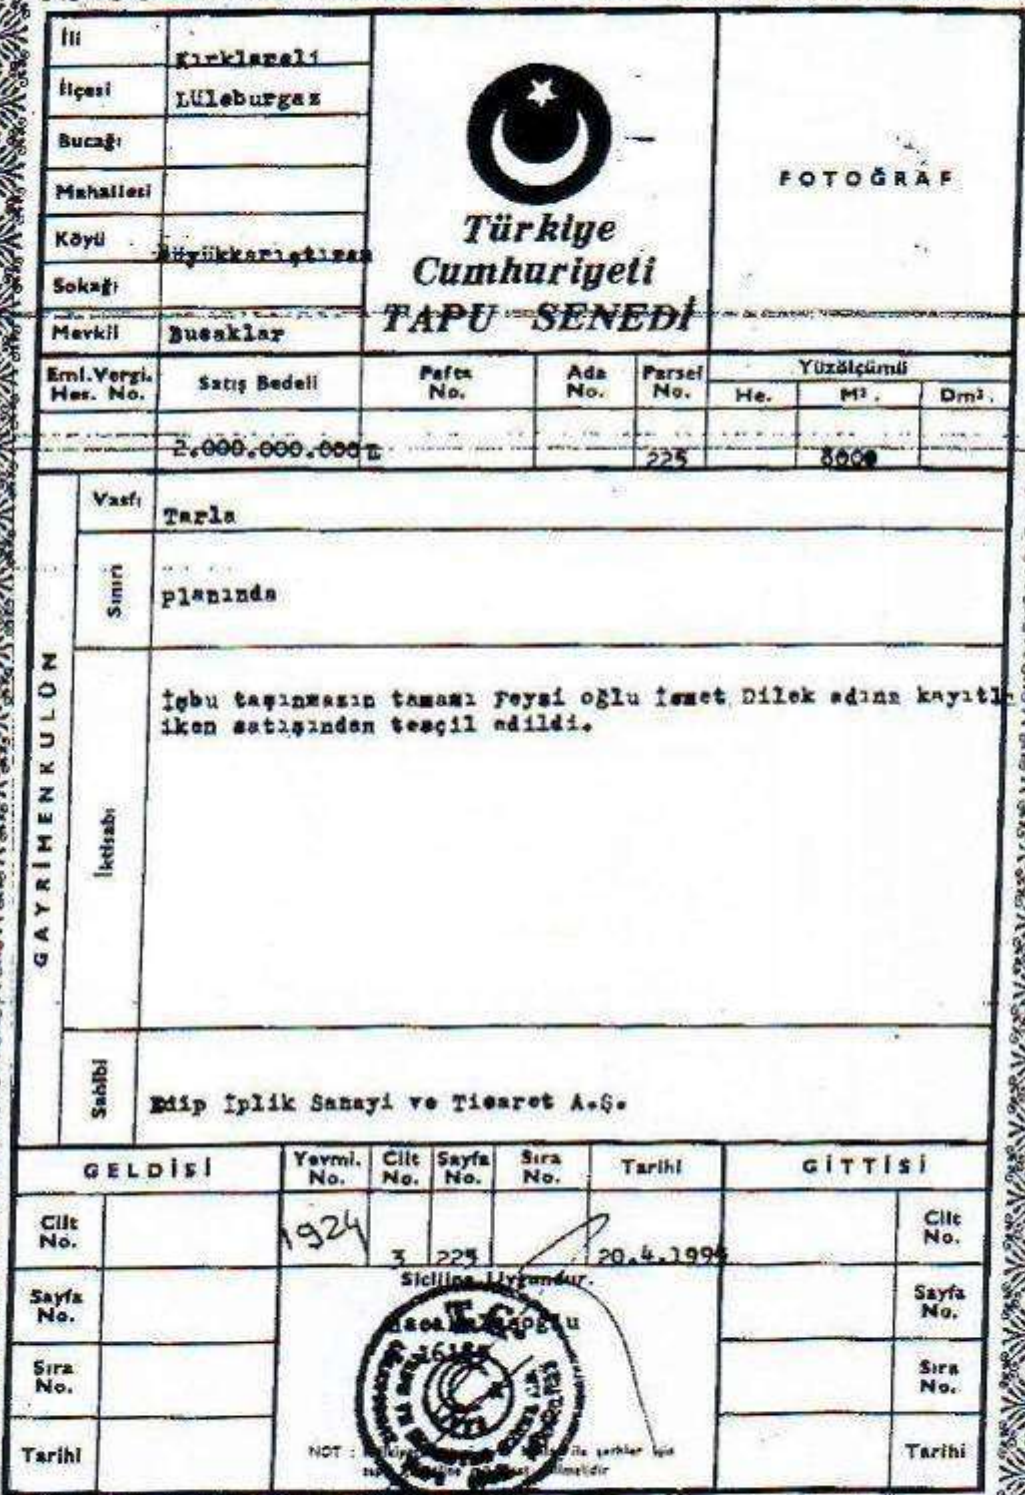 İli Kırklareli
İlçesi Lüleburgaz
Bucağı
Mahallesi
Köyü Büyükkarıştıran
Sokağı
Mevkii Busaklar
Türkiye
Cumhuriyeti
TAPU SENEDİ
FOTOĞRAF
Eml.Vergi. Hes. No. Satış Bedeli Pafta No. Ada No. Parsel No. Yüzölçümü
He. M². Dm².
2.000.000.000 225 8000
GAYRİMENKULÜN
Vasfı Tarla
Sınırı planında
İktisabı
İşbu taşınmazın tamamı Feyzi oğlu İsmet Dilek adına kayıtlı
iken satışından tesçil edildi.
Sahibi Edip İplik Sanayi ve Ticaret A.Ş.
GELDİSİ Yevmi. No. Cilt No. Sayfa No. Sıra No. Tarihi GİTTİSİ
Cilt No. 1924 3 225 Cilt No.
Siciline Uygundur.
Sayfa No. Sayfa No.
T.C.
Sıra No. Sıra No.
Tarihi Tarihi
NOT : ile şerhler için